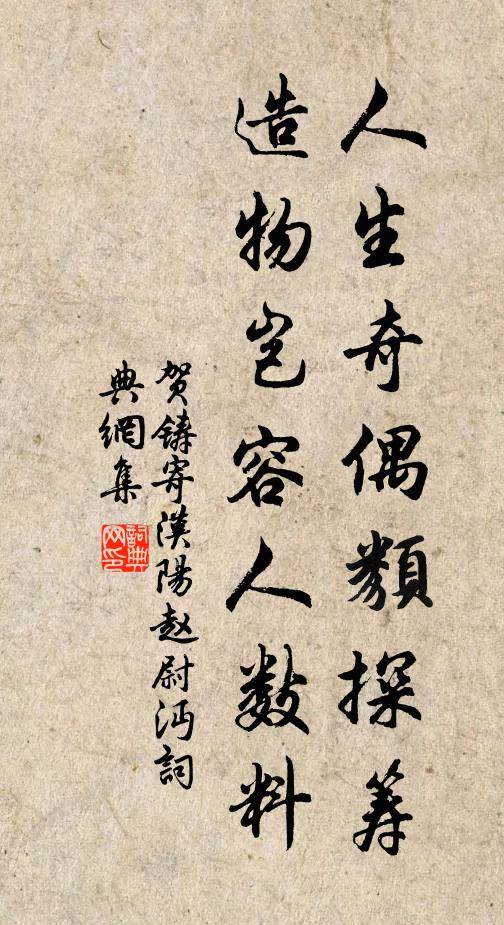 人生奇偶類探筹
造物岂容人數料
賀鑄寄漢陽赵尉沔詞
典網集
詞典
网印